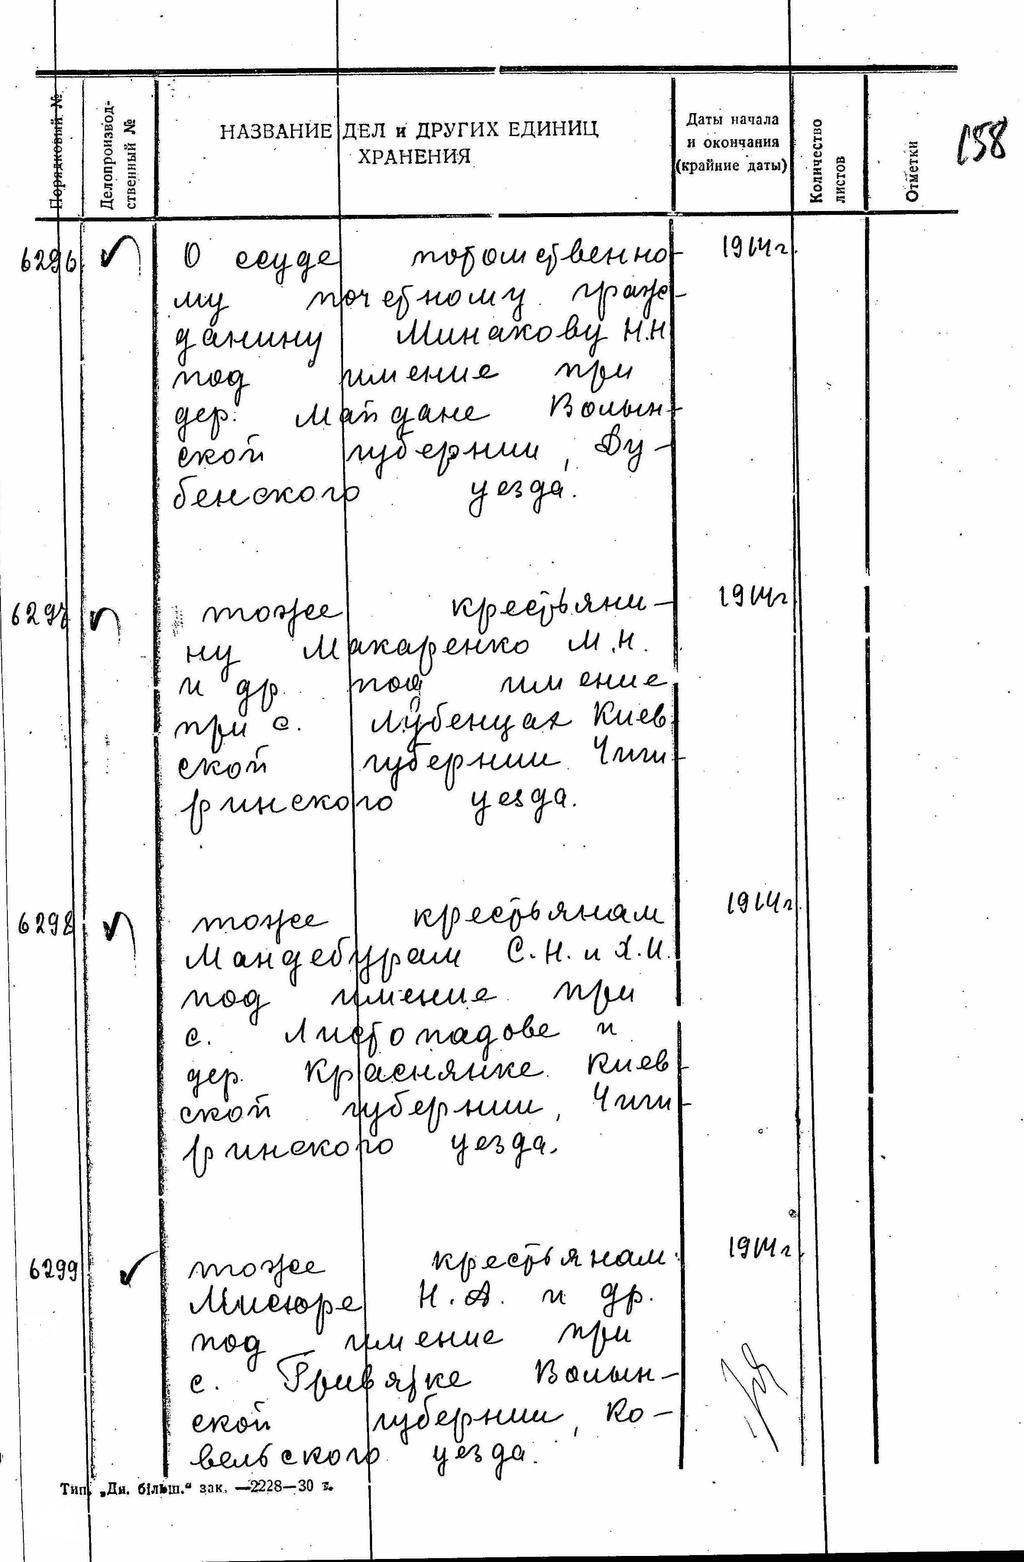 Порядковый №
Делопроизвод-
ственный №
НАЗВАНИЕ ДЕЛ и ДРУГИХ ЕДИНИЦ
ХРАНЕНИЯ
Даты начала
и окончания
(крайние даты)
Количество
листов
Отметки
158
6296 О ссуде потомственно- 1914г
му почетному граж-
данину Минакову Н.Н
под имение при
дер. Майдане Волын-
ской губернии, Ду-
бенского уезда.
6297 тоже крестьяни- 1914г
ну Макаренко М.Н.
и др. под имение
при с. Лубенцах Киев-
ской губернии Чиги-
ринского уезда.
6298 тоже крестьянам 1914г
Мандебурам С.Н. и Я.И.
под имение при
с. Листопадове и
дер. Краснянке Киев-
ской губернии, Чиги-
ринского уезда.
6299 тоже крестьянам 1914г
Мисюре Н.А. и др.
под имение при
с. Гривятке Волын-
ской губернии, Ко-
вельского уезда.
Тип. „Дн. більш.“ зак. —2228—30 г.